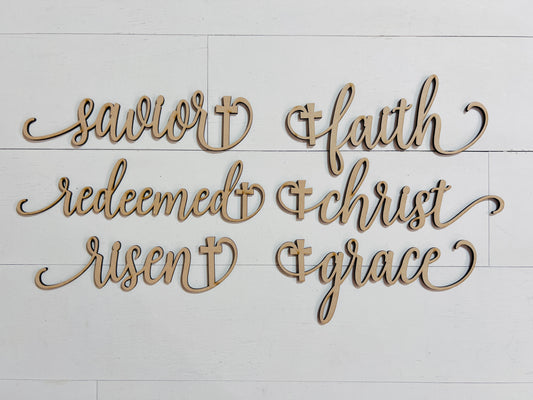 savior
faith
redeemed
christ
risen
grace